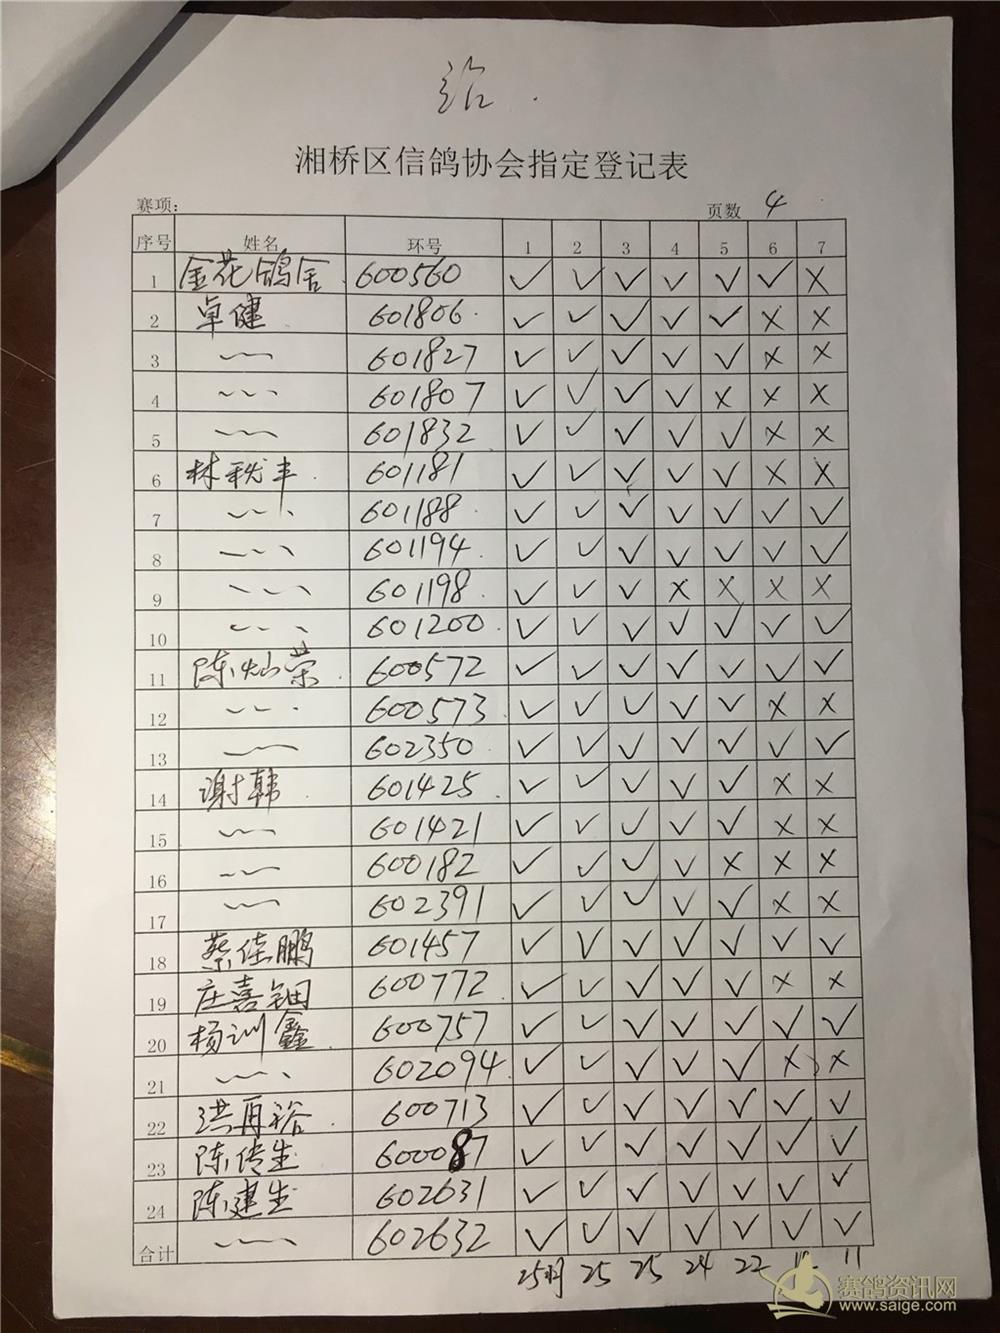 湘桥区信鸽协会指定登记表
赛项: 页数 4
序号 姓名 环号 1 2 3 4 5 6 7
1 金花鸽舍 600560 ✓ ✓ ✓ ✓ ✓ ✓ ×
2 卓健 601806 ✓ ✓ ✓ ✓ ✓ × ×
3 601827 ✓ ✓ ✓ ✓ ✓ × ×
4 601807 ✓ ✓ ✓ ✓ × × ×
5 601832 ✓ ✓ ✓ ✓ ✓ × ×
6 林秋丰 601181 ✓ ✓ ✓ ✓ ✓ × ×
7 601188 ✓ ✓ ✓ ✓ ✓ ✓ ✓
8 601194 ✓ ✓ ✓ ✓ ✓ ✓ ✓
9 601198 ✓ ✓ ✓ × × × ×
10 601200 ✓ ✓ ✓ ✓ ✓ ✓ ✓
11 陈灿荣 600572 ✓ ✓ ✓ ✓ ✓ ✓ ✓
12 600573 ✓ ✓ ✓ ✓ ✓ × ×
13 602350 ✓ ✓ ✓ ✓ ✓ ✓ ✓
14 谢韩 601425 ✓ ✓ ✓ ✓ ✓ × ×
15 601421 ✓ ✓ ✓ ✓ ✓ × ×
16 600182 ✓ ✓ ✓ ✓ × × ×
17 602391 ✓ ✓ ✓ ✓ ✓ × ×
18 蔡佳鹏 601457 ✓ ✓ ✓ ✓ ✓ ✓ ✓
19 庄嘉钿 600772 ✓ ✓ ✓ ✓ ✓ × ×
20 杨训鑫 600757 ✓ ✓ ✓ ✓ ✓ ✓ ✓
21 602094 ✓ ✓ ✓ ✓ ✓ × ×
22 洪再裕 600713 ✓ ✓ ✓ ✓ ✓ ✓ ✓
23 陈传生 600087 ✓ ✓ ✓ ✓ ✓ ✓ ✓
24 陈建生 602631 ✓ ✓ ✓ ✓ ✓ ✓ ✓
合计 602632 ✓ ✓ ✓ ✓ ✓ ✓ ✓
25羽 25 25 24 22 12 11
赛鸽资讯网
www.saige.com